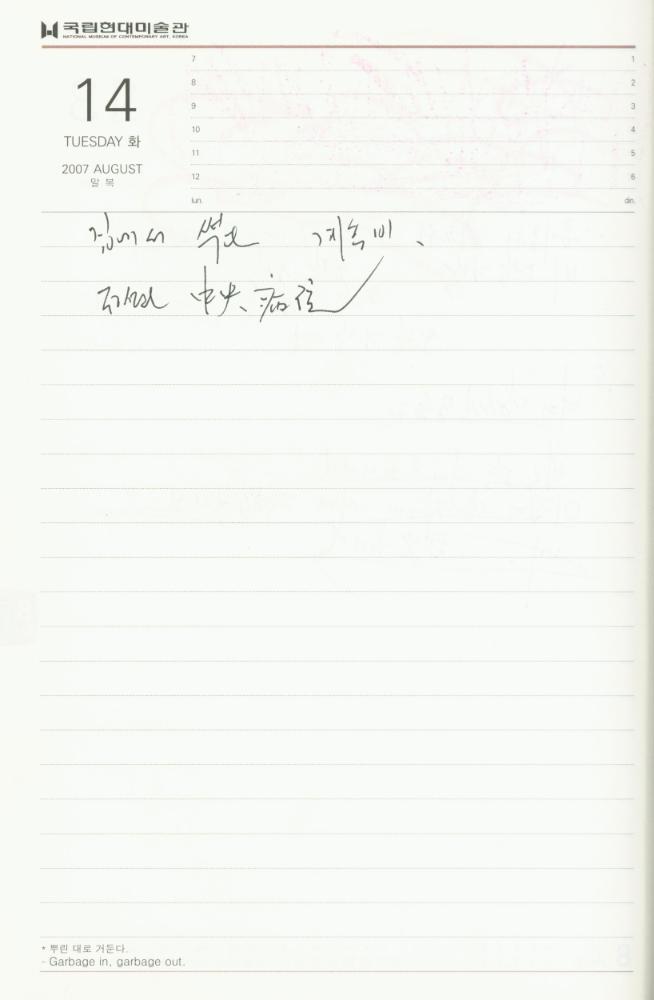 국립현대미술관
NATIONAL MUSEUM OF CONTEMPORARY ART, KOREA
14
TUESDAY 화
2007 AUGUST
말 복
7 1
8 2
9 3
10 4
11 5
12 6
lun. din.
집에서 계속 비.
中央、病院
* 뿌린 대로 거둔다.
- Garbage in, garbage out.